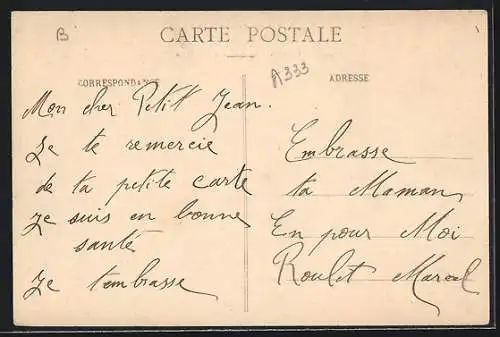 B
CARTE POSTALE
A333
CORRESPONDANCE
ADRESSE
Mon cher Petit Jean.
Je te remercie
de ta petite carte
je suis en bonne
santé
Je t'embrasse
Embrasse
ta Maman
En pour Moi
Roulet Marcel